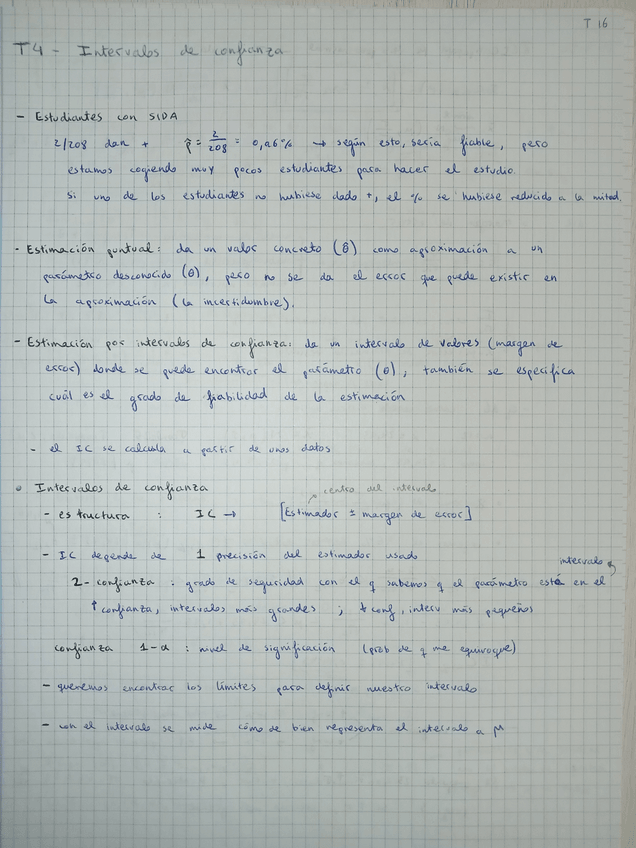 T 16
T4 - Intervalos de confianza
- Estudiantes con SIDA
2/208 dan + p̂ = 2/208 = 0,96% → según esto, sería fiable, pero
estamos cogiendo muy pocos estudiantes para hacer el estudio.
Si uno de los estudiantes no hubiese dado +, el % se hubiese reducido a la mitad.
- Estimación puntual: da un valor concreto (θ̂) como aproximación a un
parámetro desconocido (θ), pero no se da el error que puede existir en
la aproximación (la incertidumbre).
- Estimación por intervalos de confianza: da un intervalo de valores (margen de
error) donde se puede encontrar el parámetro (θ), también se especifica
cuál es el grado de fiabilidad de la estimación
- el IC se calcula a partir de unos datos
• Intervalos de confianza
centro del intervalo
- estructura : IC → [Estimador ± margen de error]
- IC depende de 1 precisión del estimador usado
intervalo
2- confianza : grado de seguridad con el q sabemos q el parámetro está en el
↑ confianza, intervalos más grandes ; ↓ conf, interv más pequeños
confianza 1-α : nivel de significación (prob de q me equivoque)
- queremos encontrar los límites para definir nuestro intervalo
- con el intervalo se mide cómo de bien representa el intervalo a μ